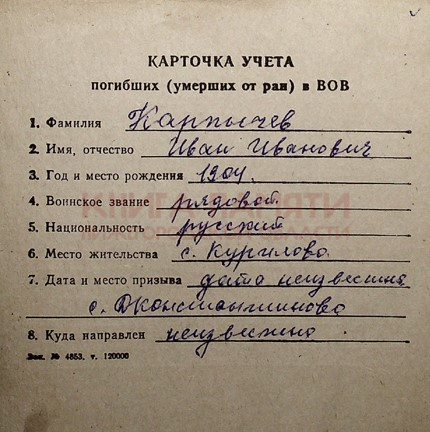 КАРТОЧКА УЧЕТА
погибших (умерших от ран) в ВОВ
1. Фамилия Карпычев
2. Имя, отчество Иван Иванович
3. Год и место рождения 1904.
4. Воинское звание рядовой.
КНИГА ПАМЯТИ
5. Национальность русский
НИЖЕГОРОДСКОЙ ОБЛАСТИ
6. Место жительства с. Курилово.
7. Дата и место призыва дата неизвестна
с. Д константиново
8. Куда направлен неизвестно.
Зак. № 4853. т. 120000